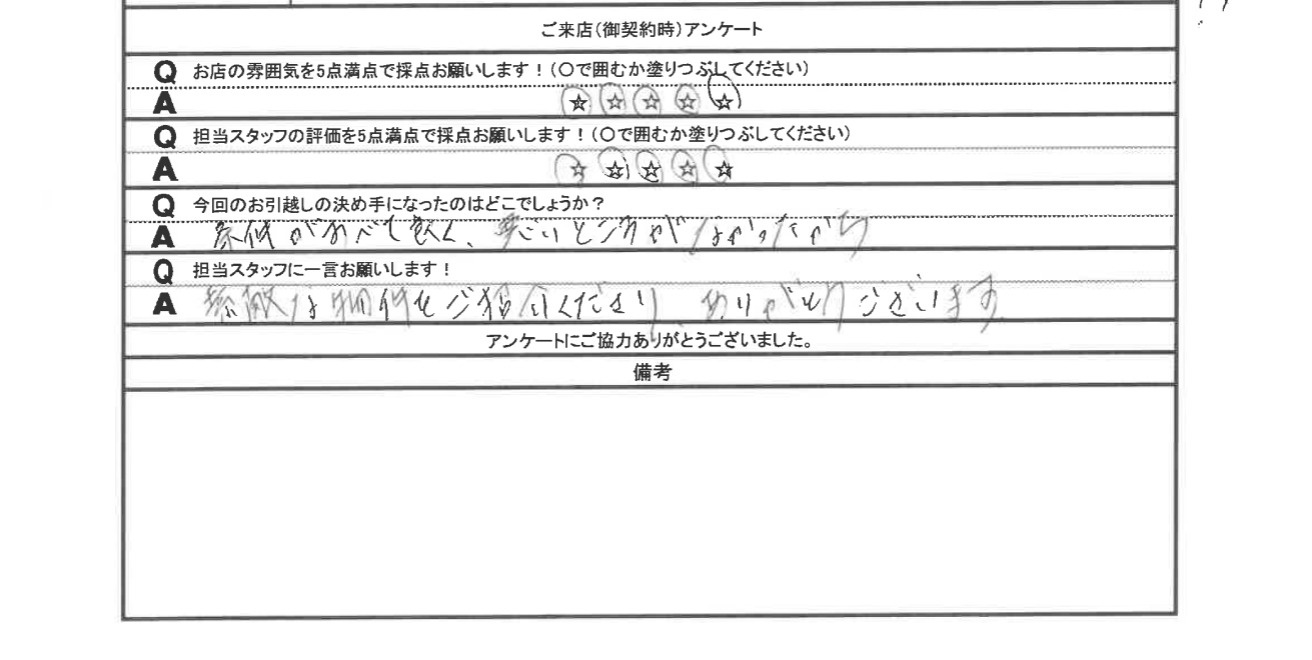 ご来店(御契約時)アンケート
Q お店の雰囲気を5点満点で採点お願いします！(〇で囲むか塗りつぶしてください)
A ☆☆☆☆☆
Q 担当スタッフの評価を5点満点で採点お願いします！(〇で囲むか塗りつぶしてください)
A ☆☆☆☆☆
Q 今回のお引越しの決め手になったのはどこでしょうか？
A 条件がすべて良く、悪いところがなかったから
Q 担当スタッフに一言お願いします！
A 素敵な物件をご紹介くださり、ありがとうございます
アンケートにご協力ありがとうございました。
備考